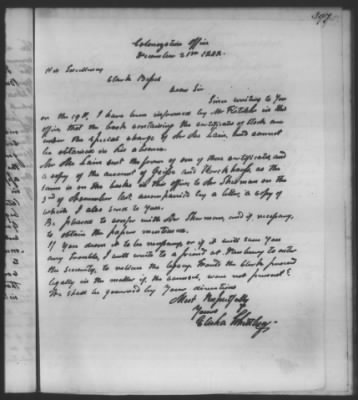 397
Colonization Office
December 21st 1842.
His Excellency
Clark Bissell
Dear Sir
Since writing to You
on the 19th, I have been informed by Mr
office, that the book containing the certificates of Stock are
under the special charge of Mr Mc Lain, and cannot
be obtained in his absence.
Mr Mc Lain sent the form of one of these certificates, and
a copy of the account of and as the
same is on the books in this office, to Mr Sherman on the
3rd of last, accompanied by a letter, a copy of
which I also send to You.
Be pleased to confer with Mr Sherman, and if necessary,
to obtain the papers mentioned.
If You deem it to be necessary, or if it will save You
any trouble, I will write to a friend at to enter
the security, to release the legacy. Could the Clerk proceed
legally in the matter if the were not present?
We shall be governed by Your directions
Most Respectfully
Yours
Elisha Whittlesey